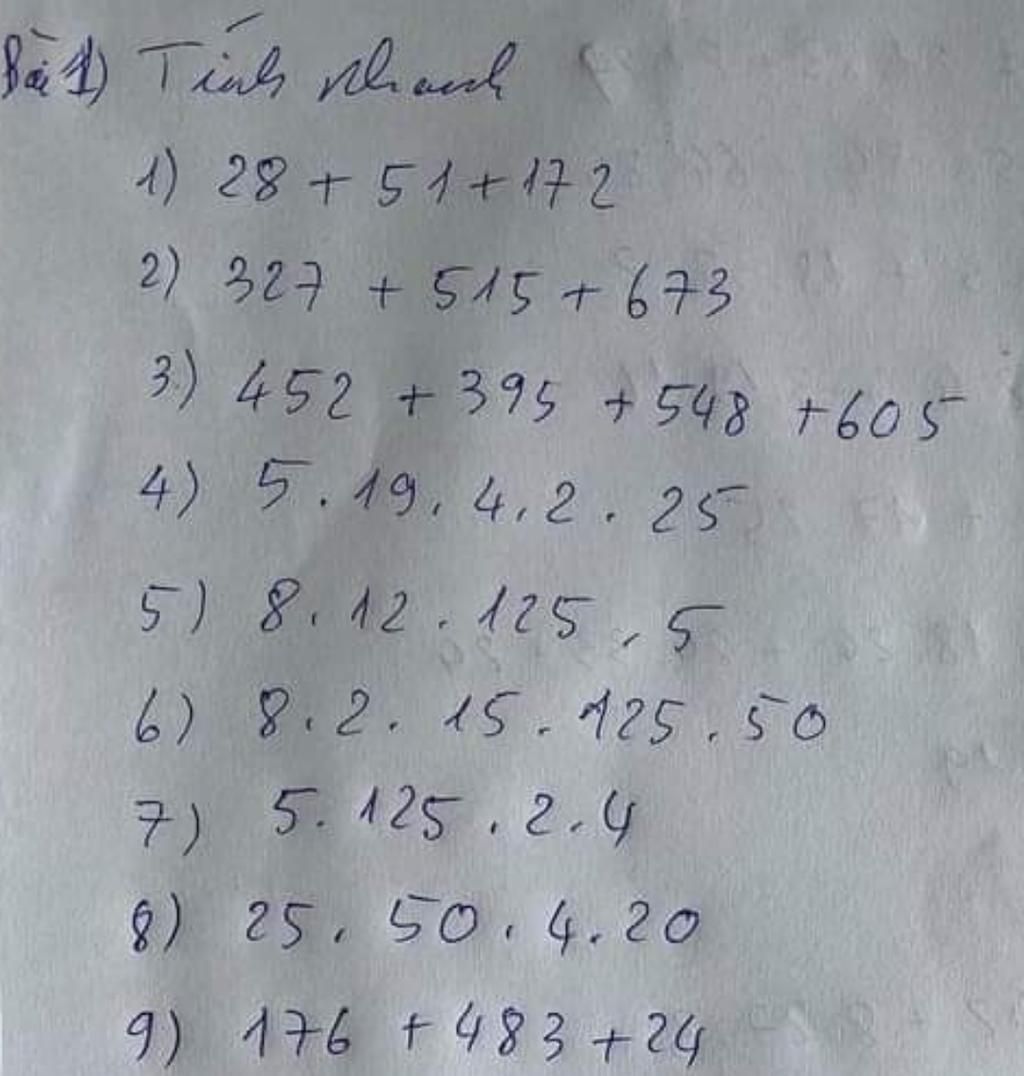 Bài 1) Tính nhanh
1) 28 + 51 + 172
2) 327 + 515 + 673
3) 452 + 395 + 548 + 605
4) 5 . 19 . 4 . 2 . 25
5) 8 . 12 . 125 . 5
6) 8 . 2 . 15 . 125 . 50
7) 5 . 125 . 2 . 4
8) 25 . 50 . 4 . 20
9) 176 + 483 + 24